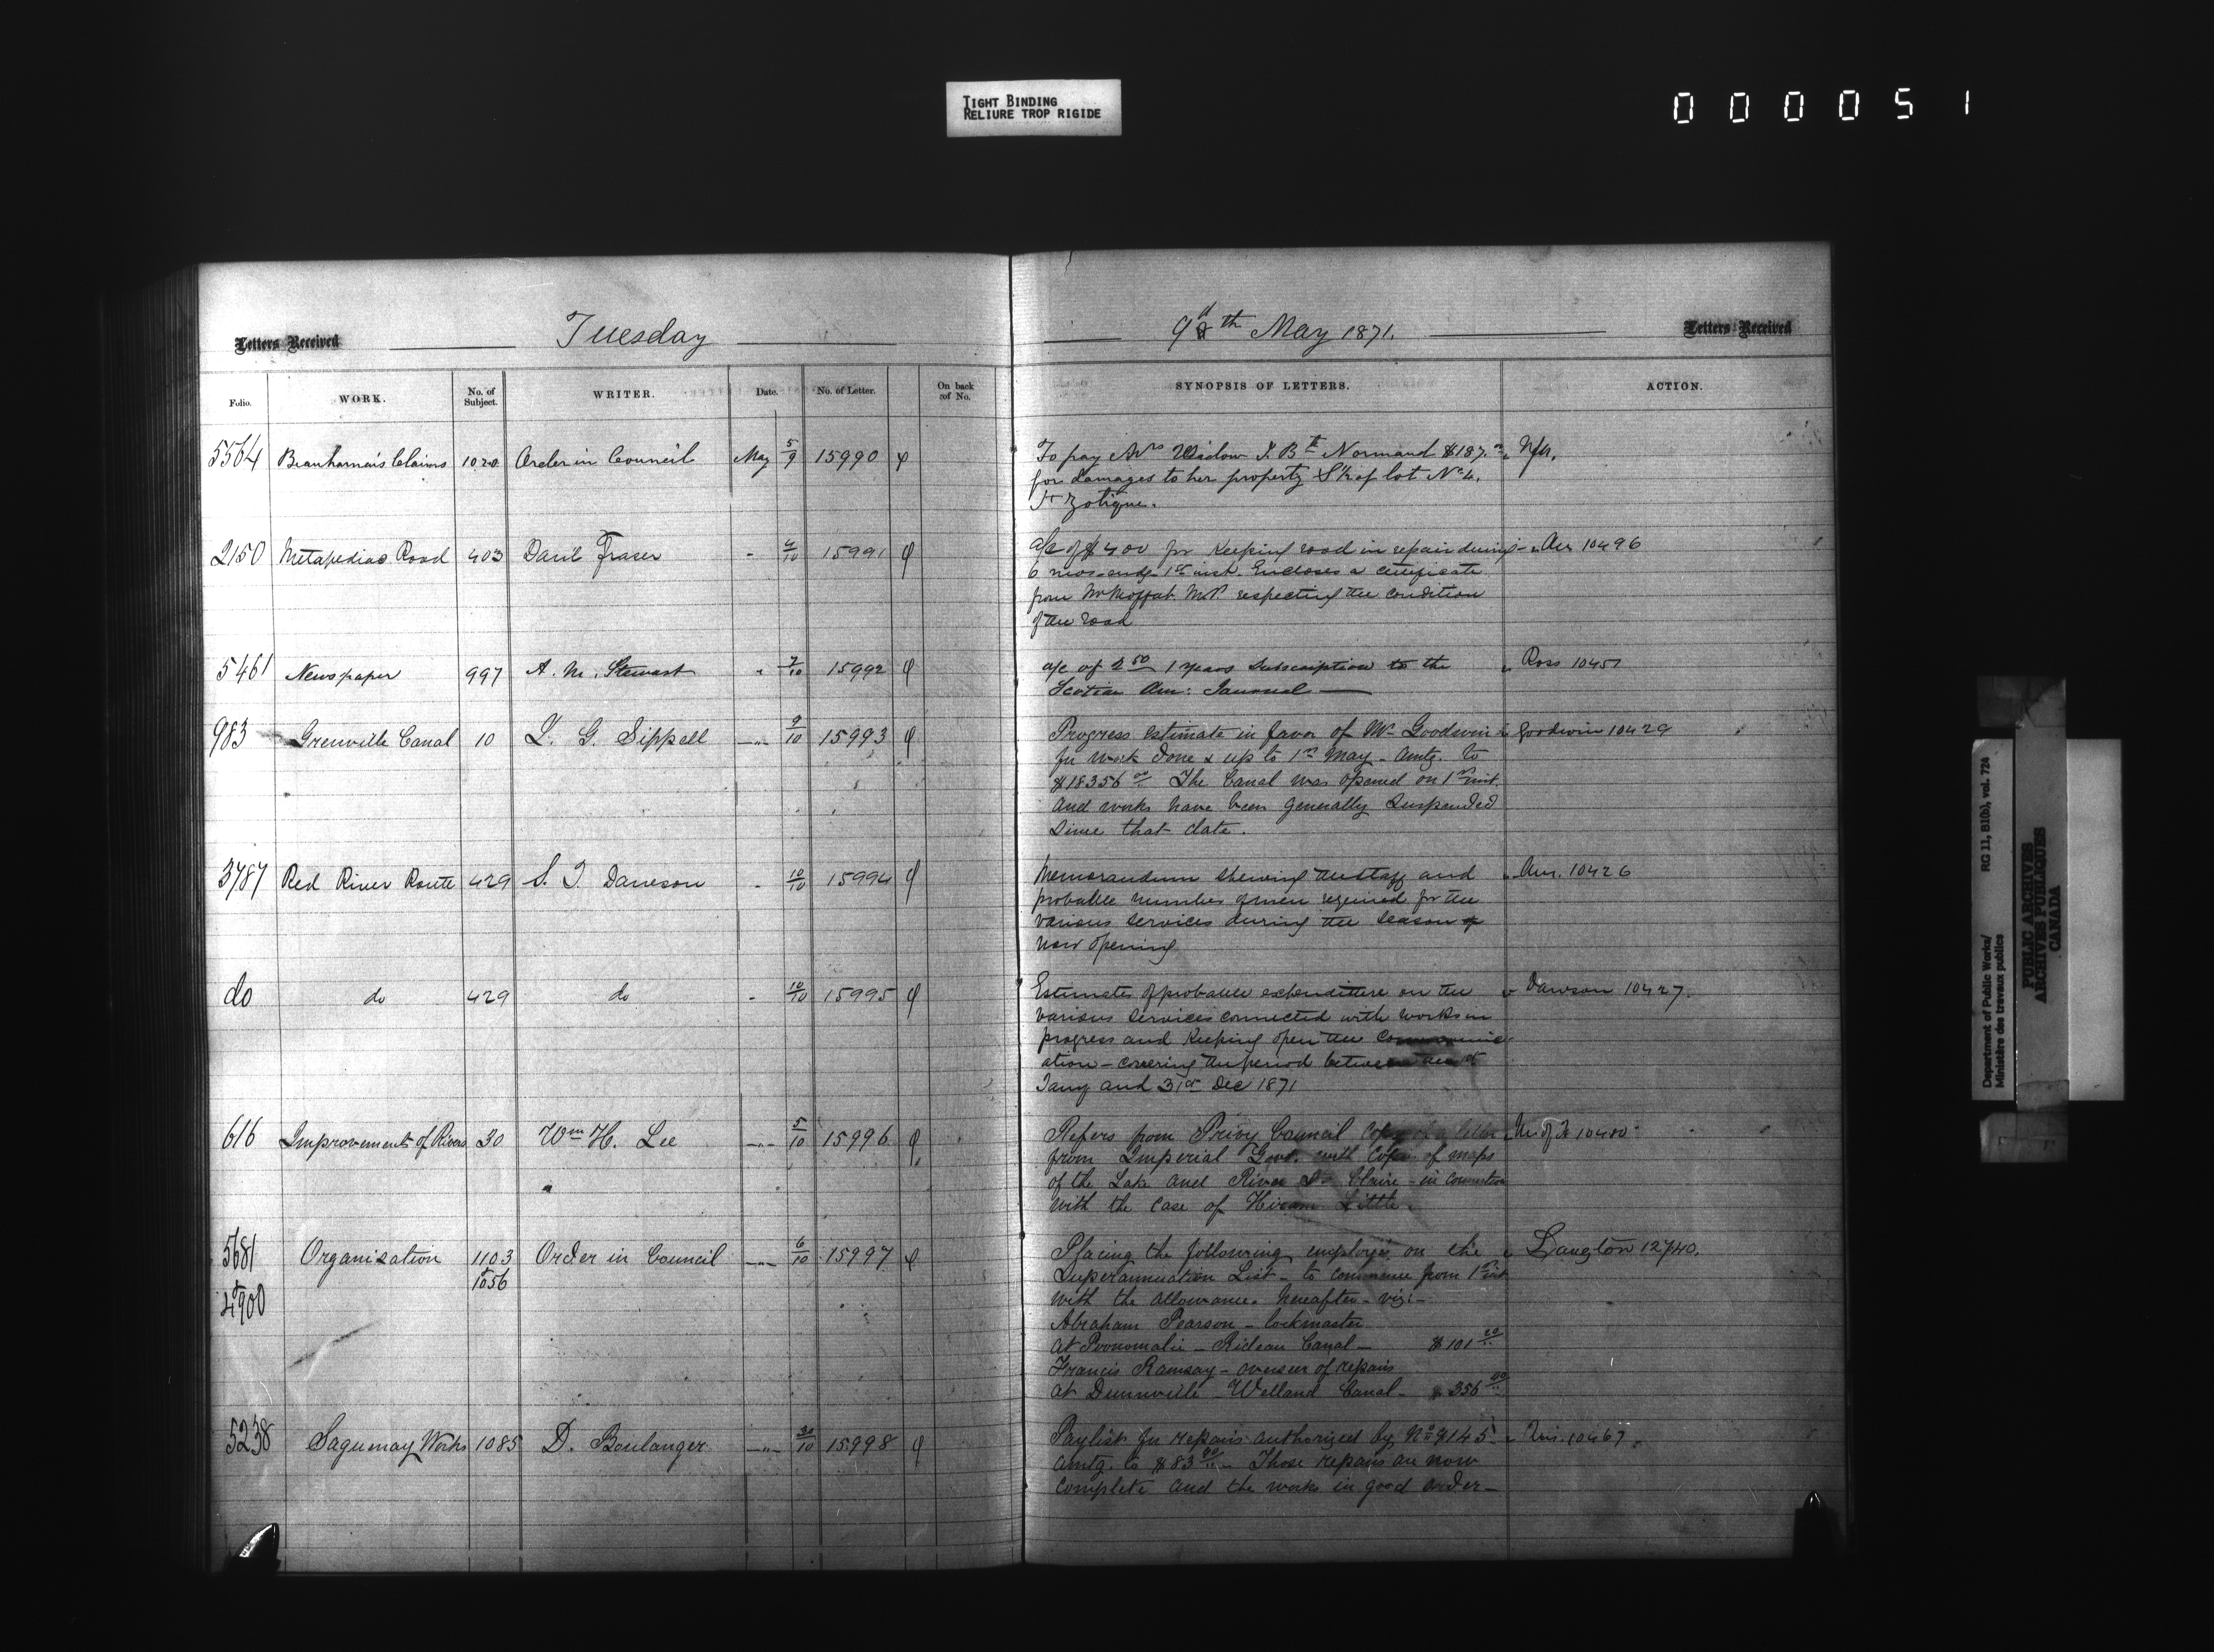 TIGHT BINDING
RELIURE TROP RIGIDE
000051
Letters Received
Tuesday
9th May 1871.
Letters Received
Folio.
WORK.
No. of Subject.
WRITER.
Date.
No. of Letter.
On back of No.
SYNOPSIS OF LETTERS.
ACTION.
5564 Beauharnois Claims 1020 Order in Council May 5/9 15990 To pay Widow J. Bte Normand $187.
for damages to her property of lot No 4.
St Zotique.
2150 Metapediac Road 403 Danl Fraser " 4/10 15991 a/c of $400 for keeping road in repair during Aur 10496
6 mos. endg. 1st inst. Encloses a certificate
from Mr Moffat M.P. respecting the condition
of the road
5461 Newspaper 997 A. M. Stewart " 7/10 15992 a/c of 2 50 1 years subscription to the Ross 10451
Scotian Am: Journal
983 Grenville Canal 10 G. Sippell " 9/10 15993 Progress estimate in favor of Mr Goodwin Goodwin 10429
for work done & up to 1st May - amtg. to
$18356 00 The Canal was opened on 1st inst.
and works have been generally suspended
since that date.
3787 Red River Route 429 S. J. Dawson " 10/10 15994 Memorandum shewing the staff and 10426
probable number of men required for the
various services during the season
now opening
do do 429 do " 10/10 15995 Estimates of probable expenditure on the Dawson 10427.
various services connected with works in
progress and keeping open the communic-
ation - covering the period between the 1st
Jany and 31st Dec 1871
616 Improvement of Rivers 30 Wm H. Lee " 5/10 15996 Refers from Privy Council Copy of a letter 10480
from Imperial Govt. with Copies of maps
of the Lake and River St. Claire - in connection
with the case of Hiram Little.
5681 Organisation 1103 Order in Council " 6/10 15997 Placing the following employé on the Langton 12740.
& 1056
& 4900
Superannuation List - to commence from 1st inst
with the allowance hereafter - viz: -
Abraham Pearson - lockmaster
at Poonomalie - Rideau Canal - $101 20
Francis Ramsay - overseer of repairs
at Dunnville - Welland Canal - $356 40
5238 Saguenay Works 1085 D. Boulanger " 30/10 15998 Paylist for repairs authorized by No 9145 10467
amtg. to $83 Those repairs are now
complete and the works in good order -
Department of Public Works/
Ministère des travaux publics
RG 11, B1(b), vol. 724
PUBLIC ARCHIVES
ARCHIVES PUBLIQUES
CANADA